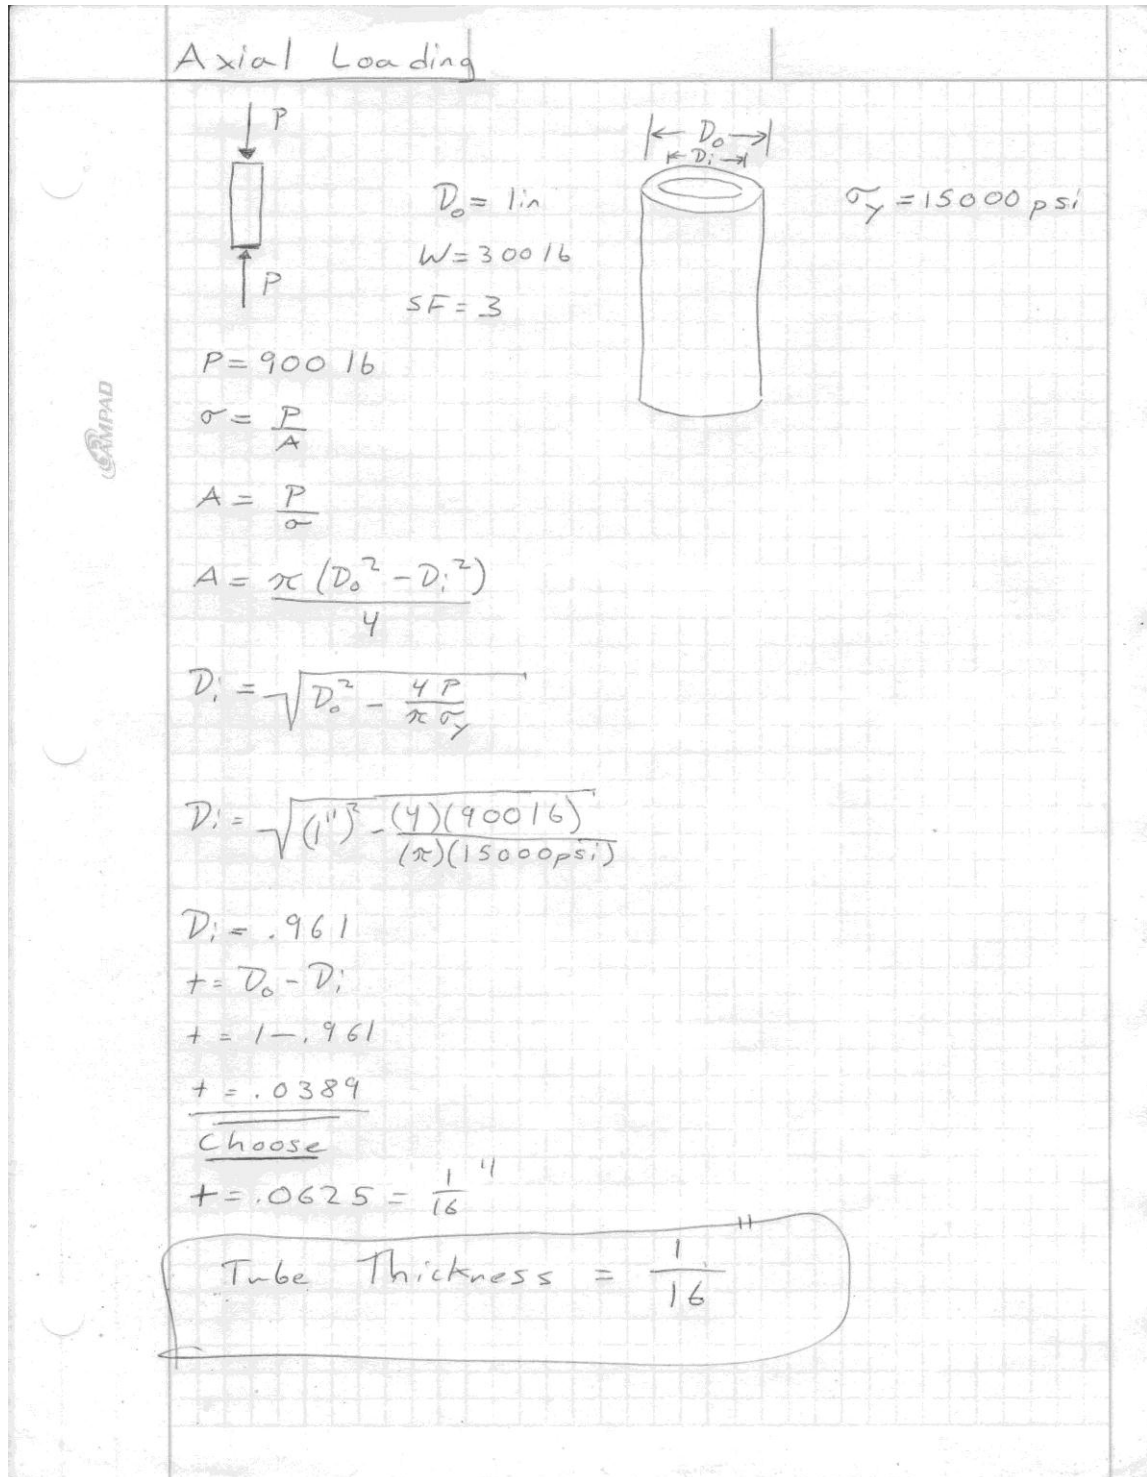 Axial Loading
P
P
D₀ = 1in
W = 300 lb
SF = 3
|← D₀ →|
|← Dᵢ →|
σ_y = 15000 psi
P = 900 lb
σ = P/A
A = P/σ
A = π (D₀² - Dᵢ²)/4
Dᵢ = √(D₀² - 4P/(πσ_y))
Dᵢ = √((1")² - (4)(900lb)/((π)(15000psi)))
Dᵢ = .961
t = D₀ - Dᵢ
t = 1 - .961
t = .0389
Choose
t = .0625 = 1/16"
Tube Thickness = 1/16"
AMPAD